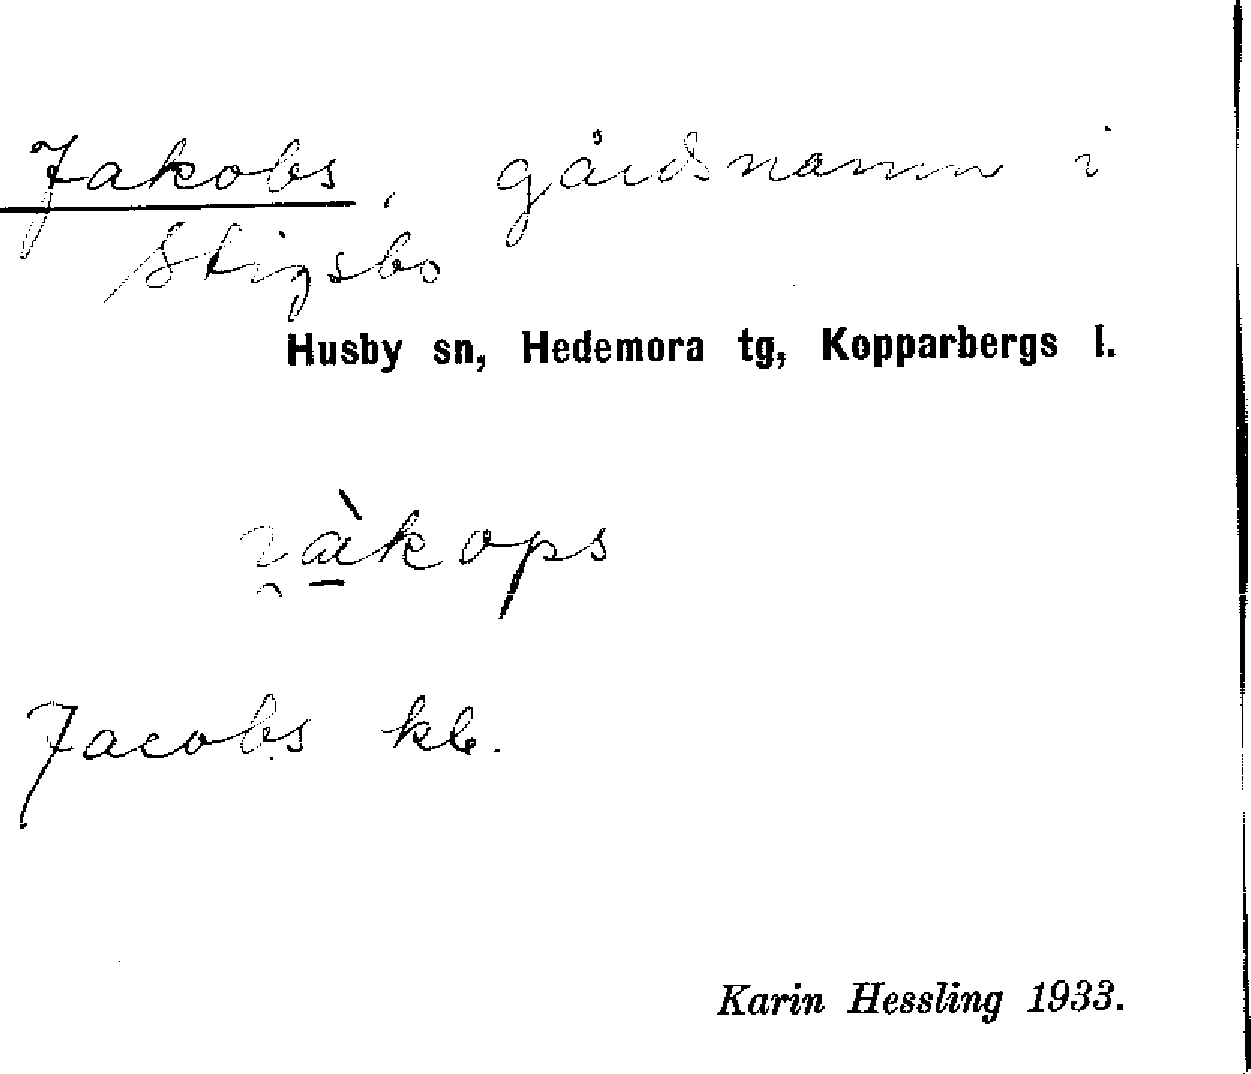 Jakobs, gårdnamn i
Stigsbo
Husby sn, Hedemora tg, Kopparbergs l.
i̯à̠kops
Jacobs kb.
Karin Hessling 1933.